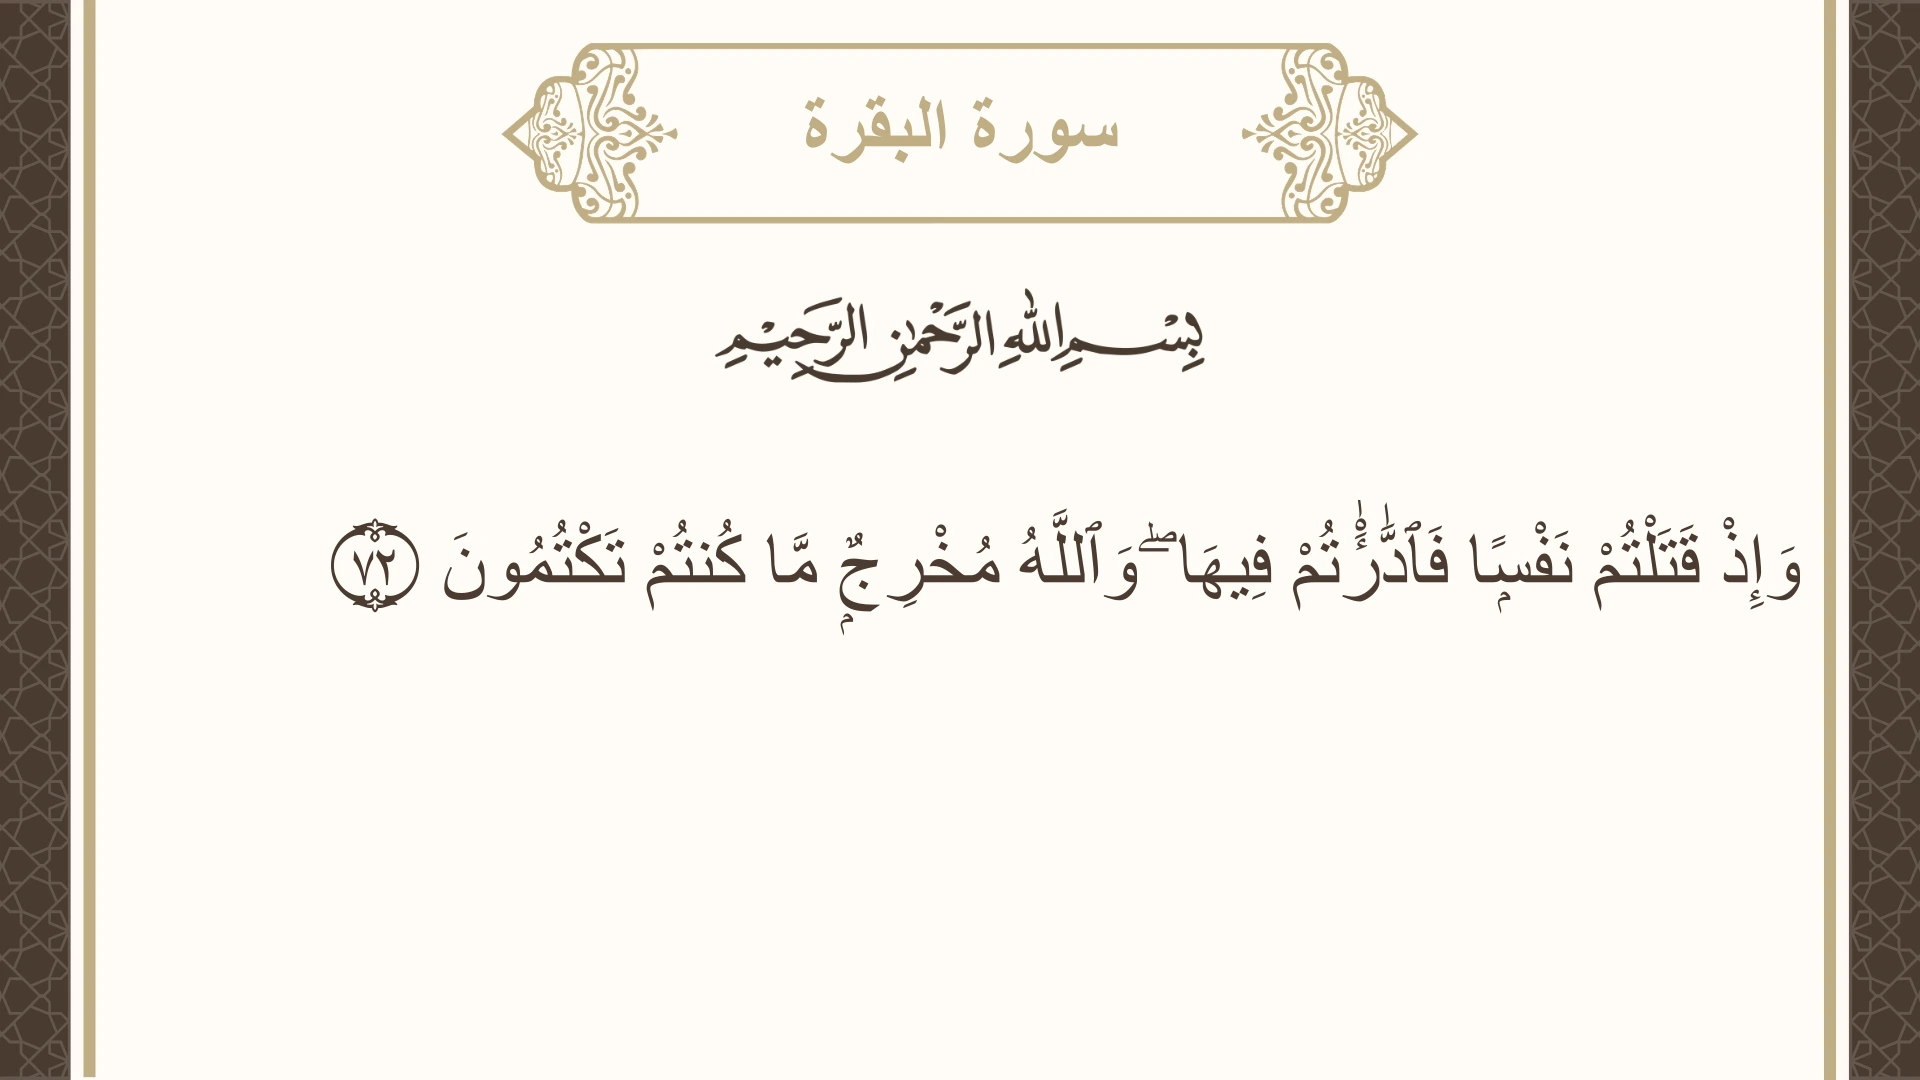 سورة البقرة
بِسْمِ اللهِ الرَّحْمٰنِ الرَّحِيْمِ
وَإِذْ قَتَلْتُمْ نَفْسًۭا فَٱدَّٰرَْٰٔتُمْ فِيهَا ۖ وَٱللَّهُ مُخْرِجٌۭ مَّا كُنتُمْ تَكْتُمُونَ ٧٢